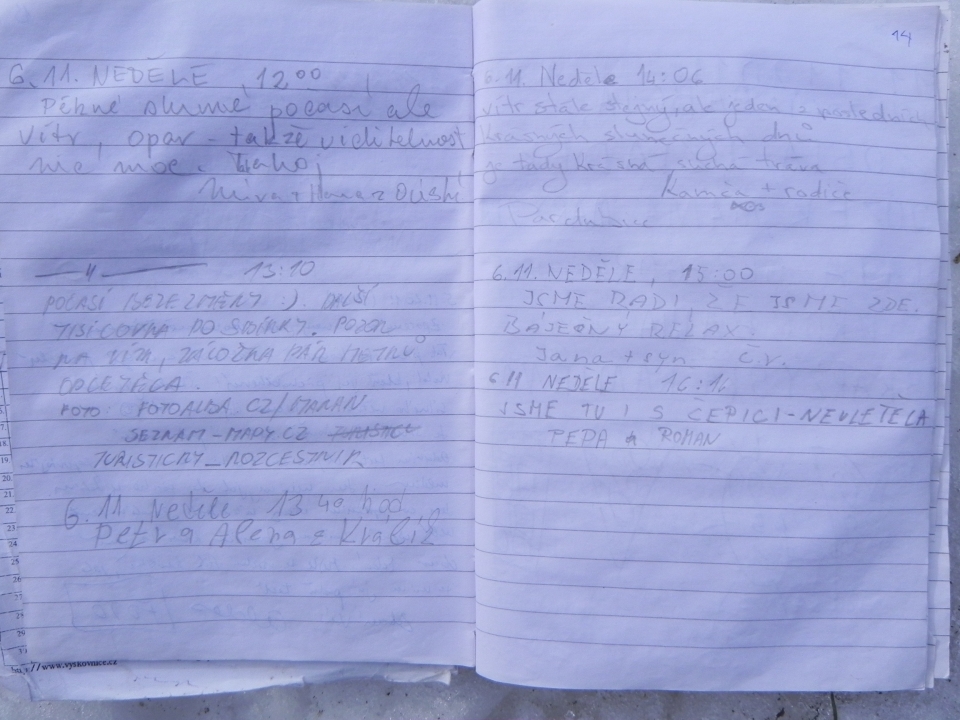 6.11. NEDĚLE, 12⁰⁰
Pěkné slunné počasí ale
vítr, opar - takže viditelnost
nic moc. Ahoj
Míra + Hana z Oústí
— 〃 — 13:10
POČASÍ BEZE ZMĚNY :). DALŠÍ
TISÍCOVKA DO SBÍRKY. POZOR
NA PÁR METRŮ
FOTO: FOTOALBA.CZ/MARAN
SEZNAM-MAPY.CZ
TURISTICKY_ROZCESTNIK
6.11. Neděle 13.40 hod
Petr a Alena z Králík
14
6.11. Neděle 14:06
vítr stále stejný, ale jeden z posledních
krásných slunečných dnů
je tady krásná suchá tráva
Kamča + rodiče
Pardubice
6.11. NEDĚLE, 15:00
JSME RÁDI, ŽE JSME ZDE.
BÁJEČNÝ RELAX.
Jana + syn Č.V.
6 11 NEDĚLE
JSME TU I S ČEPICÍ-NEULETĚLA
PEPA & ROMAN
www.vyskovnice.cz
17.
18.
19.
20.
21.
22.
23.
24.
25.
26.
27.
28.
29.